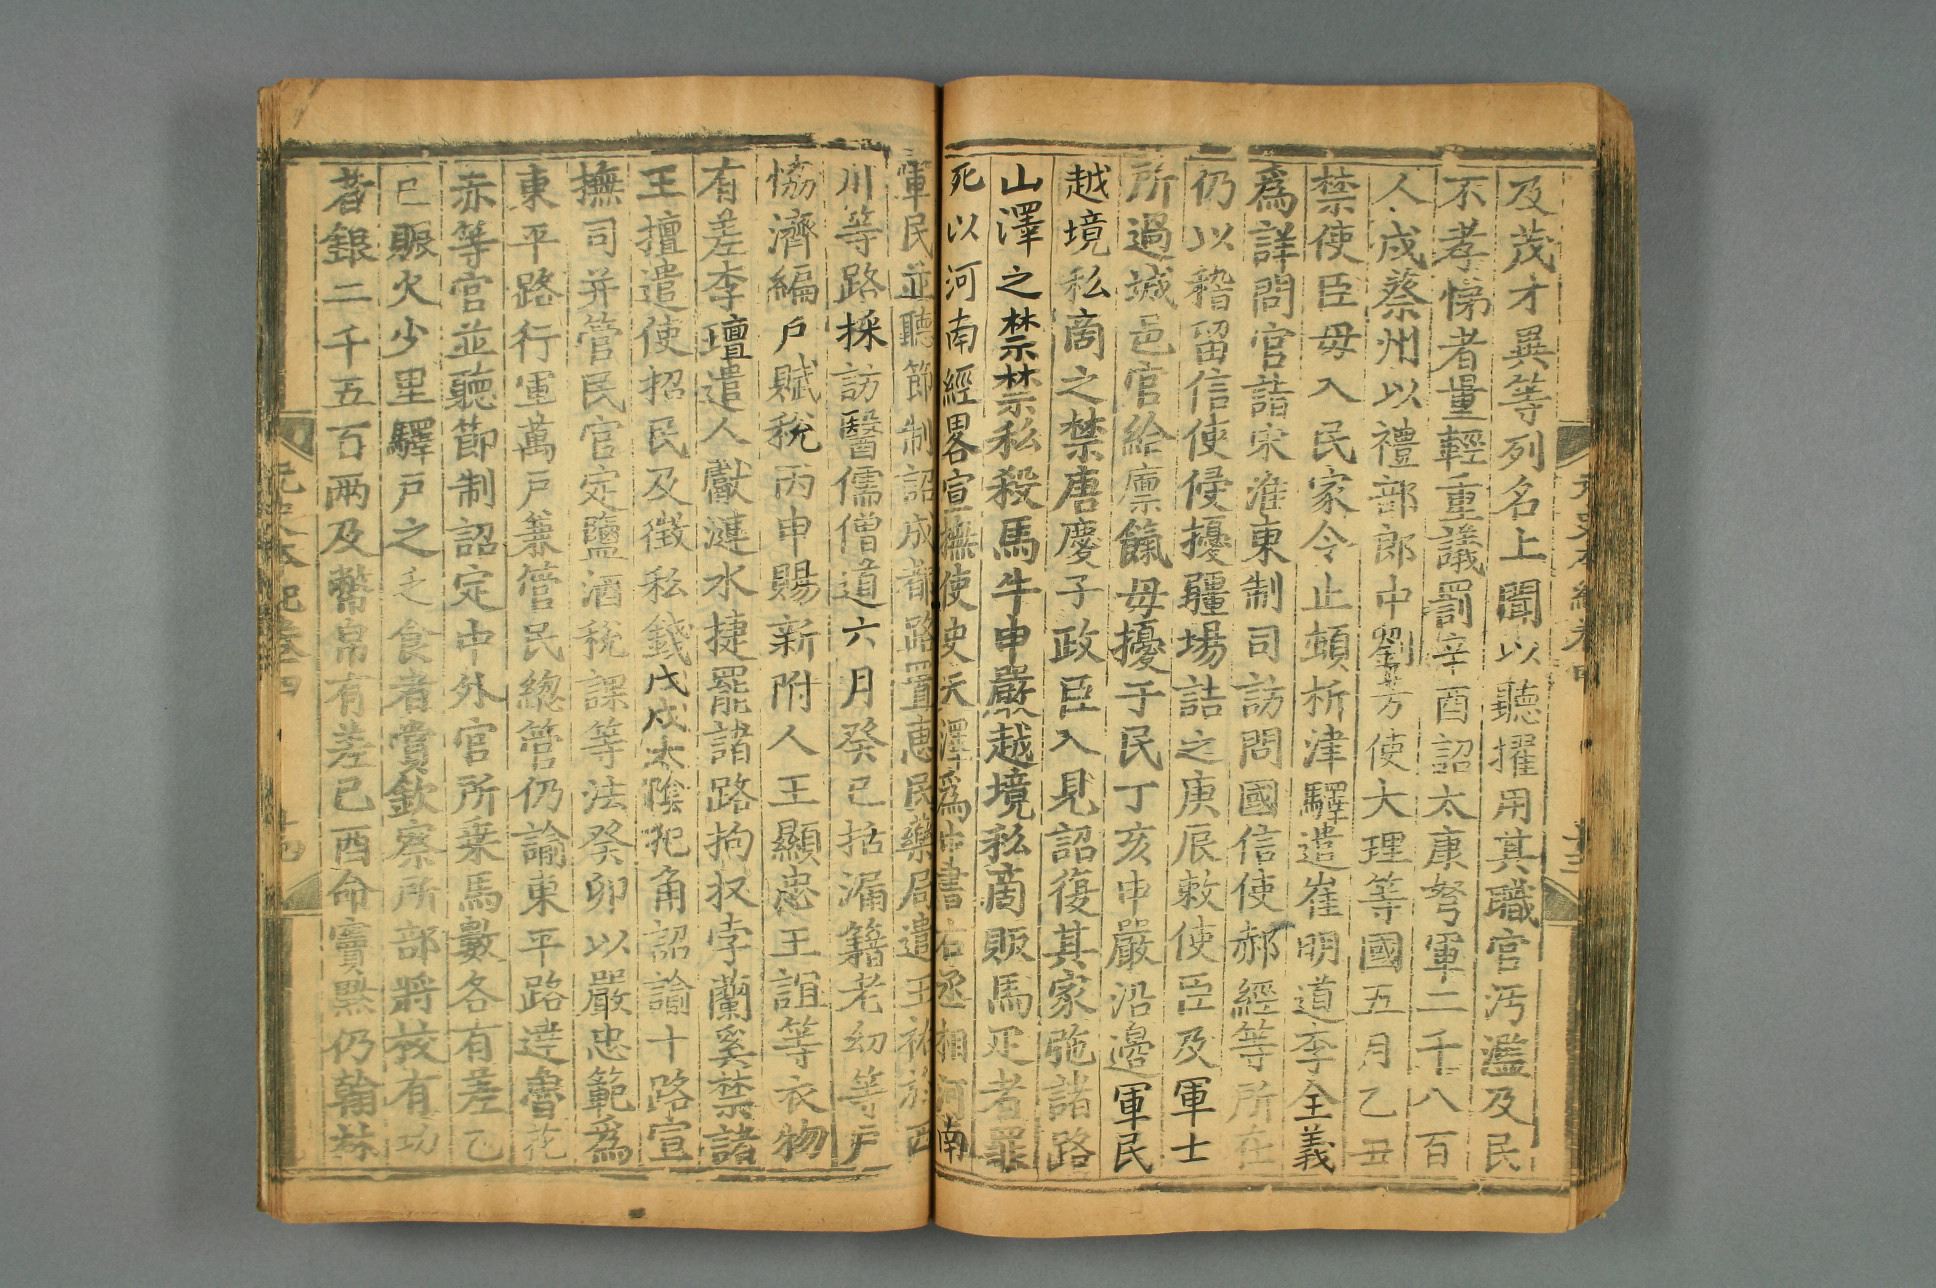 及茂才異等列名上聞以聽擢用其職官汚濫及民
不孝悌者量輕重議罰辛酉詔太康弩軍二千八百
人戍蔡州以禮部郎中劉芳使大理等國五月乙丑
禁使臣毋入民家令止頓析津驛遣崔明道李全義
爲詳問官詣宋淮東制司訪問國信使郝經等所在
仍以稽留信使侵擾疆場詰之庚辰敕使臣及軍士
所過城邑官給廪餼毋擾于民丁亥申嚴沿邊軍民
越境私商之禁唐慶子政臣入見詔復其家弛諸路
山澤之禁禁私殺馬牛申嚴越境私商販馬疋者罪
死以河南經畧宣撫使史天澤爲中書右丞相河南
軍民並聽節制詔成都路置惠民藥局遣王祐於西
川等路採訪醫儒僧道六月癸巳括漏籍老幼等户
協濟編户賦稅丙申賜新附人王顯忠王誼等衣物
有差李璮遣人獻漣水捷罷諸路拘收孛蘭奚禁諸
王擅遣使招民及徵私錢戊戌太陰犯角詔諭十路宣
撫司并管民官定鹽酒稅課等法癸卯以嚴忠範爲
東平路行軍萬户兼管民總管仍諭東平路達魯花
赤等官並聽節制詔定中外官所乗馬數各有差乙
巳賑火少里驛户之乏食者賞欽察所部將校有功
者銀二千五百兩及幣帛有差己酉命竇黙仍翰林
元史本紀卷四